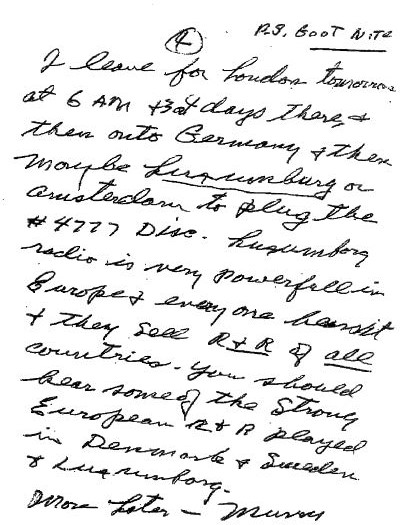 4
P.S. GooT NiTE
I leave for London tomorrow
at 6 AM + 3 days there, +
then onto Germany + then
Maybe Luxumburg or
Amsterdam to plug the
#4777 Disc. Luxumborg
radio is very powerfull in
Europe + everyone hears it
+ they sell R+R of all
countries. You should
hear some of the Strong
European R+R played
in Denmark + Sweden
+ Luxumborg.
More Later — Murray